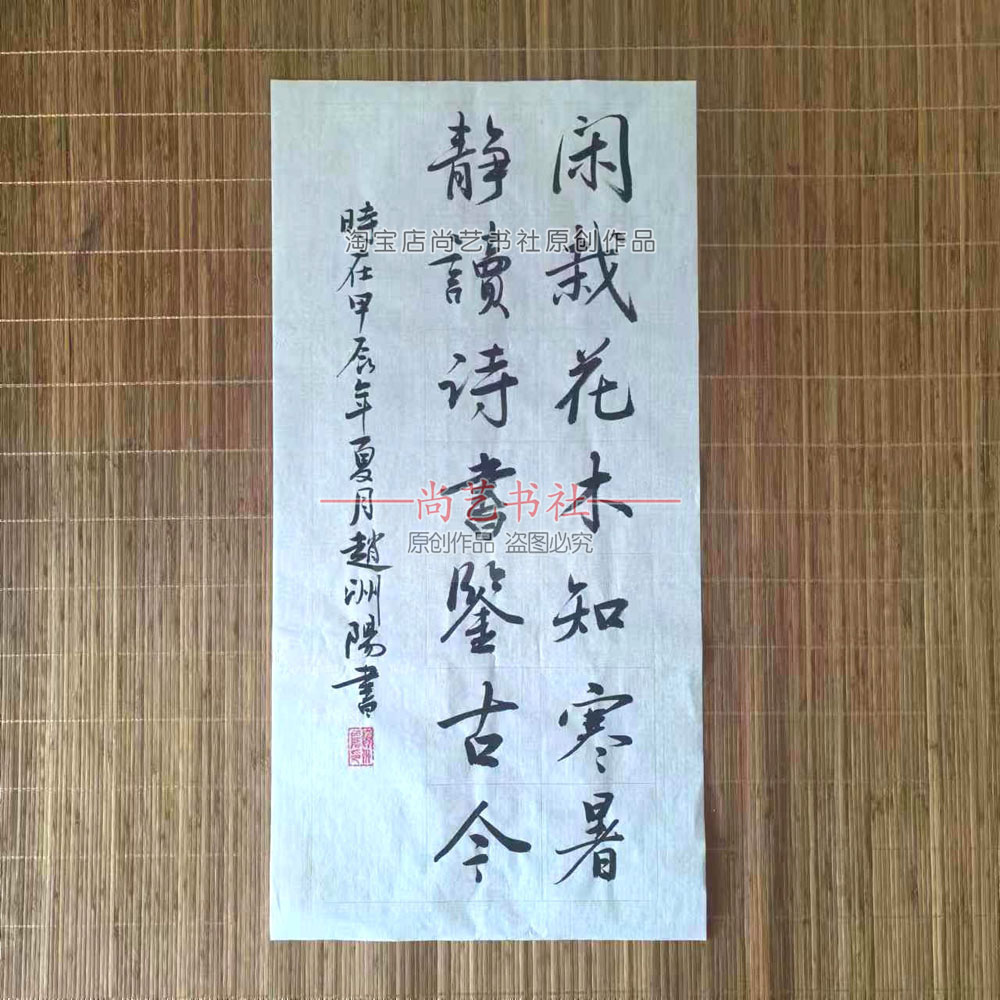 闲栽花木知寒暑
静讀诗書鑒古今
時在甲辰年夏月趙洲陽書
淘宝店尚艺书社原创作品
尚艺书社
原创作品 盗图必究